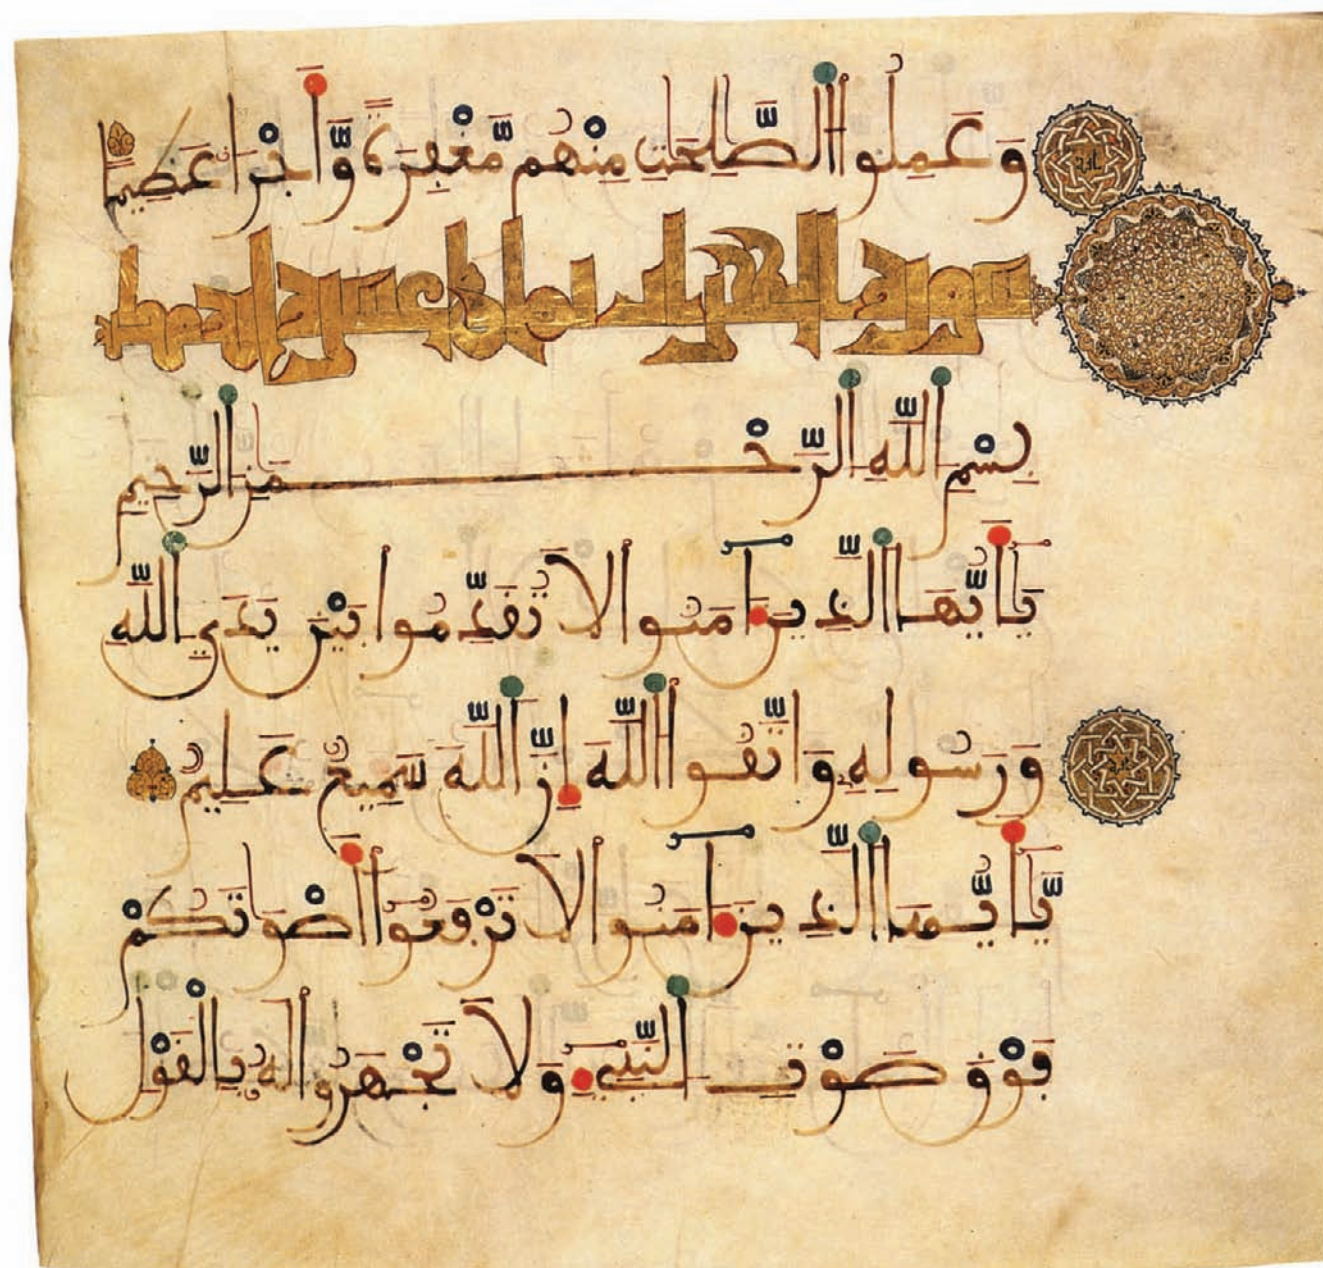 وَعَمِلُوا الصَّٰلِحَٰتِ مِنْهُم مَّغْفِرَةً وَّأَجْرًا عَظِيمًا
سورة الحجرات ثمان عشرة آية
بِسْمِ اللَّهِ الرَّحْمَٰنِ الرَّحِيمِ
يَٰأَيُّهَا الَّذِينَ ءَامَنُوا لَا تُقَدِّمُوا بَيْنَ يَدَيِ اللَّهِ
وَرَسُولِهِ وَاتَّقُوا اللَّهَ إِنَّ اللَّهَ سَمِيعٌ عَلِيمٌ
يَّٰأَيُّهَا الَّذِينَ ءَامَنُوا لَا تَرْفَعُوا أَصْوَٰتَكُمْ
فَوْقَ صَوْتِ النَّبِيءِ وَلَا تَجْهَرُوا لَهُ بِالْقَوْلِ